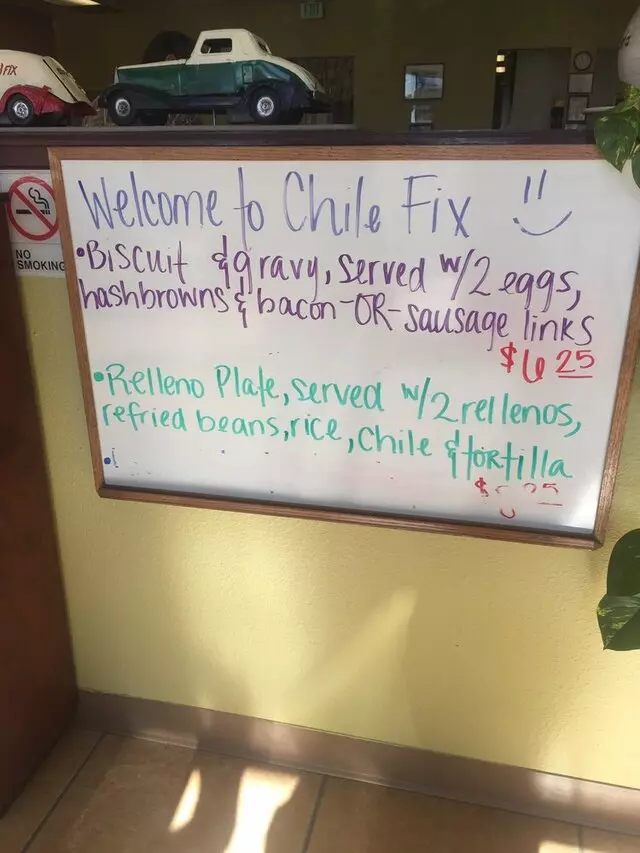 FIX
NO
SMOKING
Welcome to Chile Fix
•Biscuit & gravy, served w/2 eggs,
hashbrowns & bacon-OR-sausage links
$6 25
•Relleno Plate, served w/2 rellenos,
refried beans, rice, chile & tortilla